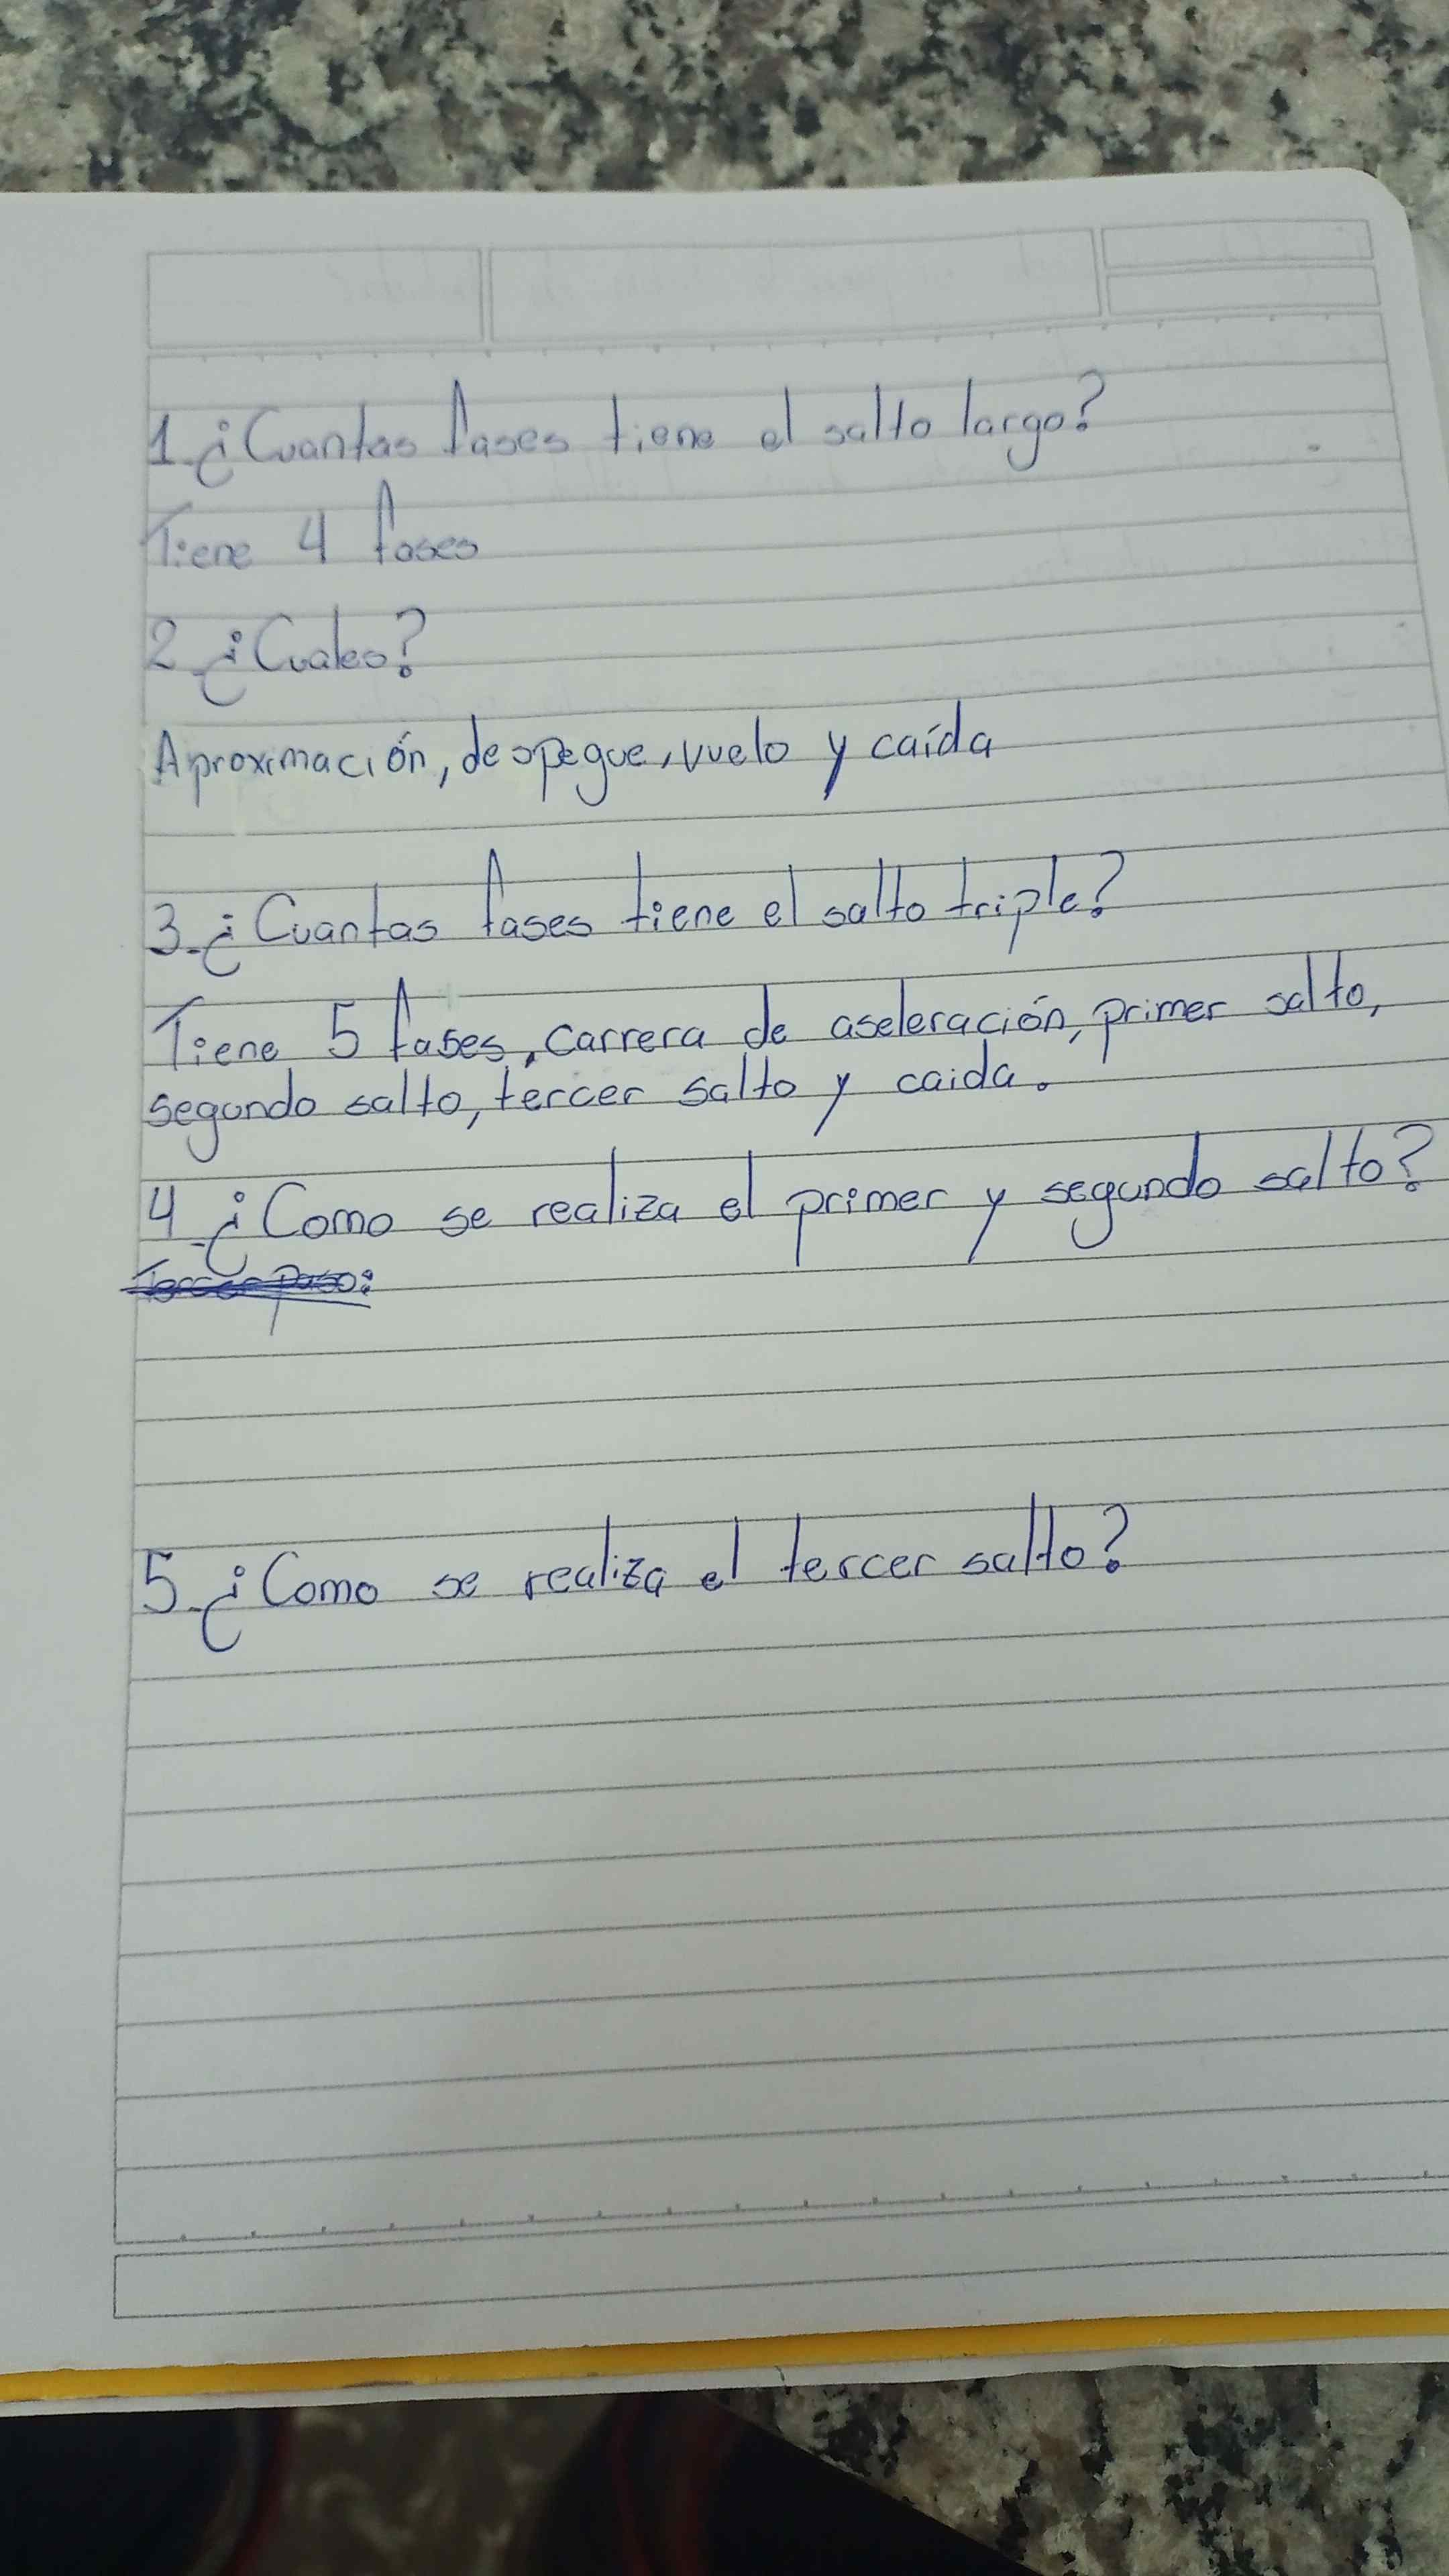 1.¿Cuantas fases tiene el salto largo?
Tiene 4 fases
2.¿Cuales?
Aproximación, despegue, vuelo y caída
3.¿Cuantas fases tiene el salto triple?
Tiene 5 fases, carrera de aseleración, primer salto,
segundo salto, tercer salto y caida.
4.¿Como se realiza el primer y segundo salto?
Tercer paso:
5.¿Como se realiza el tercer salto?